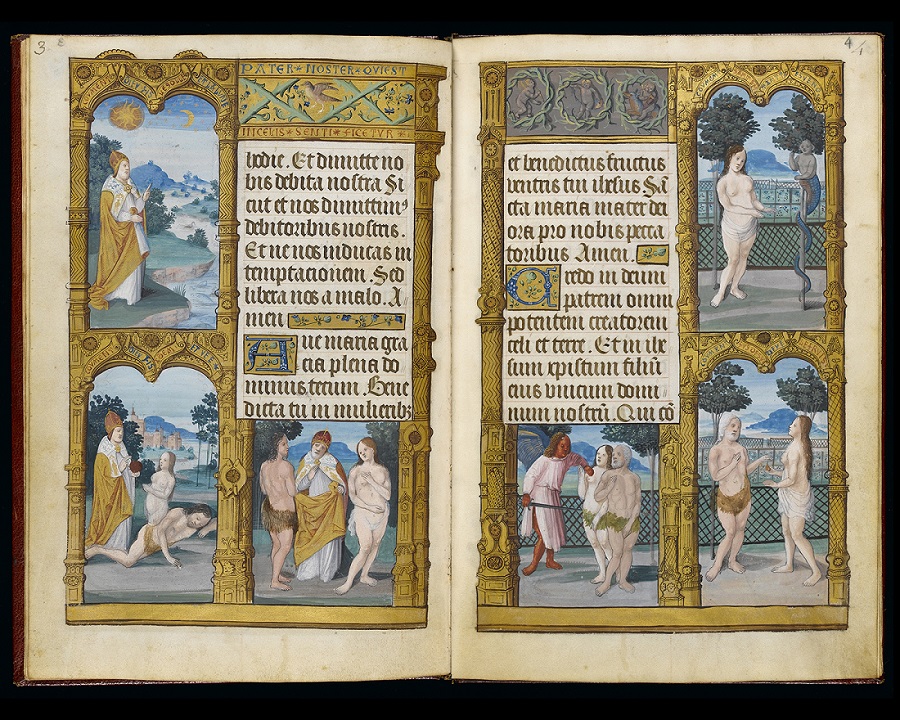 3
PATER NOSTER QVI EST
IN CELIS SENTIFICETVR
hodie. Et dimitte no
bis debita nostra Si
cut et nos dimittim⁹
debitoribus nostris.
Et ne nos inducas in
temptacionem. Sed
libera nos a malo. A
men
Aue maria gra
cia plena do
minus tecum. Bene
dicta tu in mulierib₃
4
et benedictus fructus
ventris tui ihesus Sā
cta maria mater dei
ora pro nobis pecca
toribus Amen.
Credo in deum
patrem omni
potentem creatorem
celi et terre. Et in ihe
sum xpistum filiū
eius vnicum domi
num nostrū. Qui cō